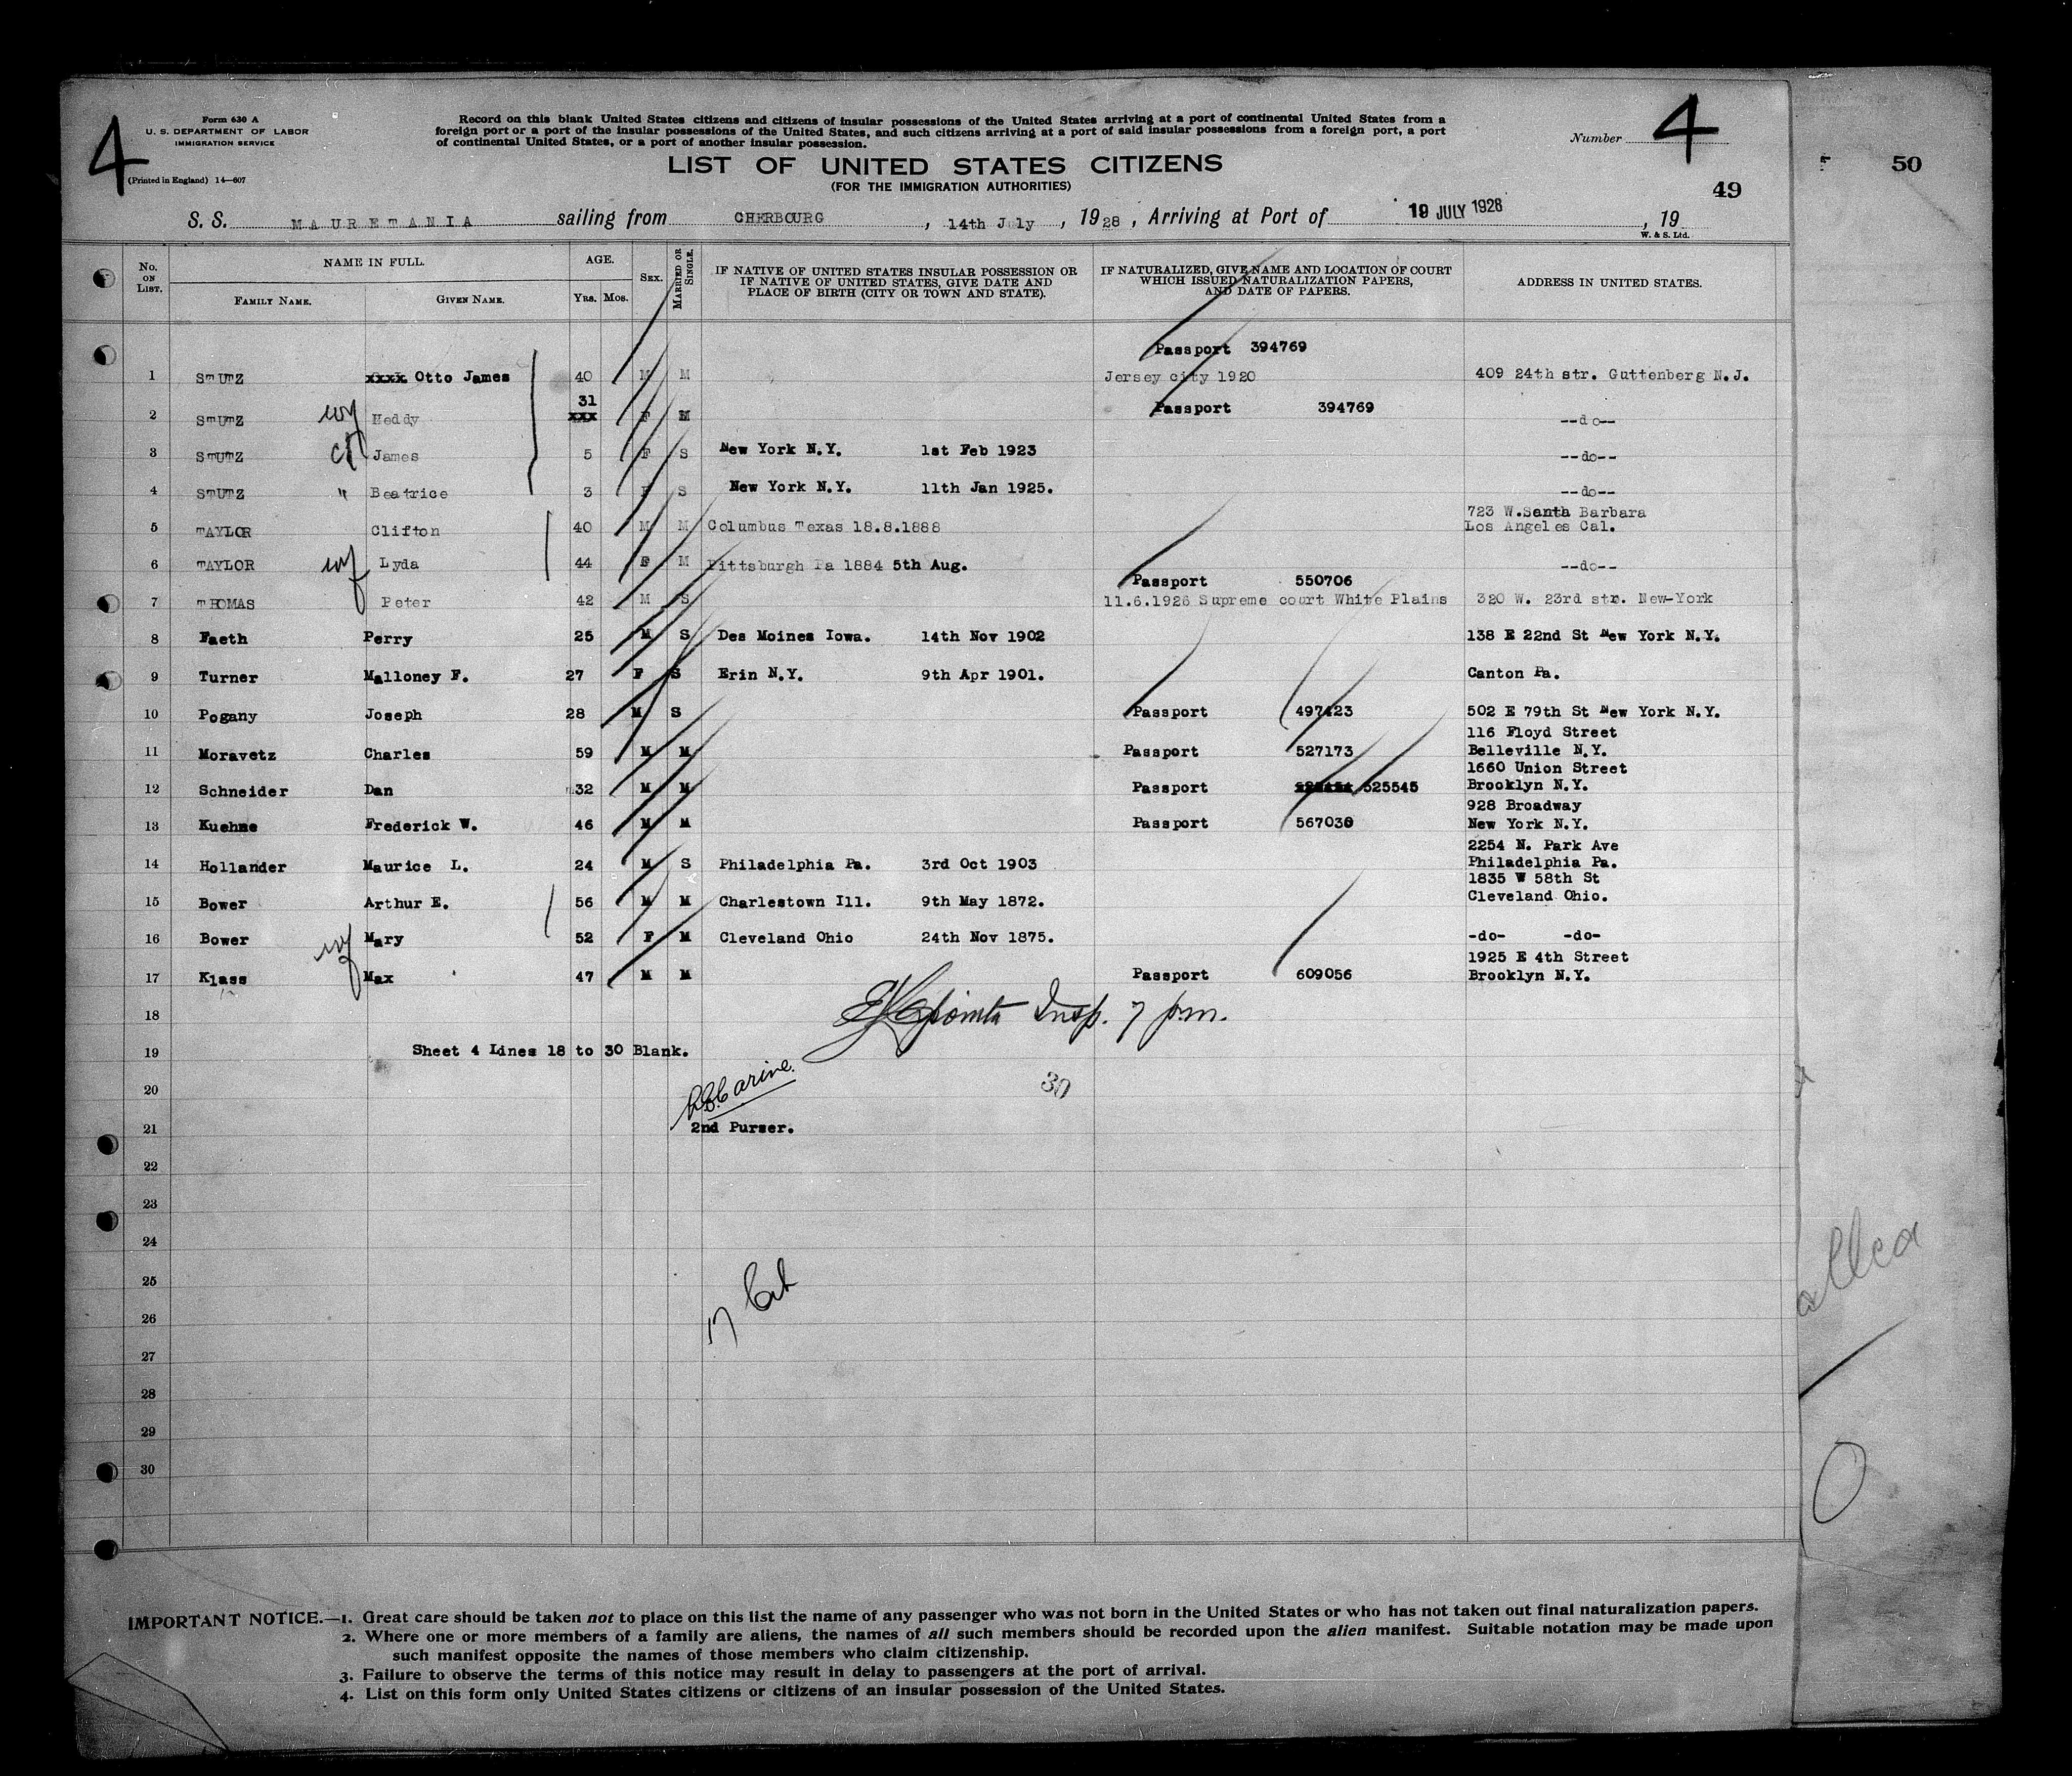 4
Form 630 A
U. S. DEPARTMENT OF LABOR
IMMIGRATION SERVICE
(Printed in England) 14—607
Record on this blank United States citizens and citizens of insular possessions of the United States arriving at a port of continental United States from a
foreign port or a port of the insular possessions of the United States, and such citizens arriving at a port of said insular possessions from a foreign port, a port
of continental United States, or a port of another insular possession.
LIST OF UNITED STATES CITIZENS
(FOR THE IMMIGRATION AUTHORITIES)
Number 4
49
50
S. S. MAURETANIA sailing from CHERBOURG, 14th July, 1928, Arriving at Port of 19 JULY 1928, 19
W. & S. Ltd.
No. ON LIST. NAME IN FULL. FAMILY NAME. GIVEN NAME. AGE. YRS. MOS. SEX. MARRIED OR SINGLE. IF NATIVE OF UNITED STATES INSULAR POSSESSION OR IF NATIVE OF UNITED STATES, GIVE DATE AND PLACE OF BIRTH (CITY OR TOWN AND STATE). IF NATURALIZED, GIVE NAME AND LOCATION OF COURT WHICH ISSUED NATURALIZATION PAPERS, AND DATE OF PAPERS. ADDRESS IN UNITED STATES.
Passport 394769
1 STUTZ xxxx Otto James 40 M M Jersey city 1920 409 24th str. Guttenberg N.J.
31
2 STUTZ wf Heddy xxx F M Passport 394769 --do--
3 STUTZ James 5 F S New York N.Y. 1st Feb 1923 --do--
4 STUTZ " Beatrice 3 F S New York N.Y. 11th Jan 1925. --do--
723 W.Santa Barbara
5 TAYLOR Clifton 40 M M Columbus Texas 18.8.1888 Los Angeles Cal.
6 TAYLOR wf Lyda 44 F M Pittsburgh Pa 1884 5th Aug. --do--
Passport 550706
7 THOMAS Peter 42 M S 11.6.1926 Supreme court White Plains 320 W. 23rd str. New-York
8 Faeth Perry 25 M S Des Moines Iowa. 14th Nov 1902 138 E 22nd St New York N.Y.
9 Turner Malloney F. 27 F S Erin N.Y. 9th Apr 1901. Canton Pa.
10 Pogany Joseph 28 M S Passport 497423 502 E 79th St New York N.Y.
116 Floyd Street
11 Moravetz Charles 59 M M Passport 527173 Belleville N.Y.
1660 Union Street
12 Schneider Dan 32 M M Passport 525545 Brooklyn N.Y.
928 Broadway
13 Kuehne Frederick W. 46 M M Passport 567030 New York N.Y.
2254 N. Park Ave
14 Hollander Maurice L. 24 M S Philadelphia Pa. 3rd Oct 1903 Philadelphia Pa.
1835 W 58th St
15 Bower Arthur E. 56 M M Charlestown Ill. 9th May 1872. Cleveland Ohio.
16 Bower wf Mary 52 F M Cleveland Ohio 24th Nov 1875. -do- -do-
1925 E 4th Street
17 Klass Max 47 M M Passport 609056 Brooklyn N.Y.
18 Insp. 7 p.m.
19 Sheet 4 Lines 18 to 30 Blank.
20 30
21 2nd Purser.
22
23
24
25
26 17
27
28
29
30
IMPORTANT NOTICE.—1. Great care should be taken not to place on this list the name of any passenger who was not born in the United States or who has not taken out final naturalization papers.
2. Where one or more members of a family are aliens, the names of all such members should be recorded upon the alien manifest. Suitable notation may be made upon
such manifest opposite the names of those members who claim citizenship.
3. Failure to observe the terms of this notice may result in delay to passengers at the port of arrival.
4. List on this form only United States citizens or citizens of an insular possession of the United States.